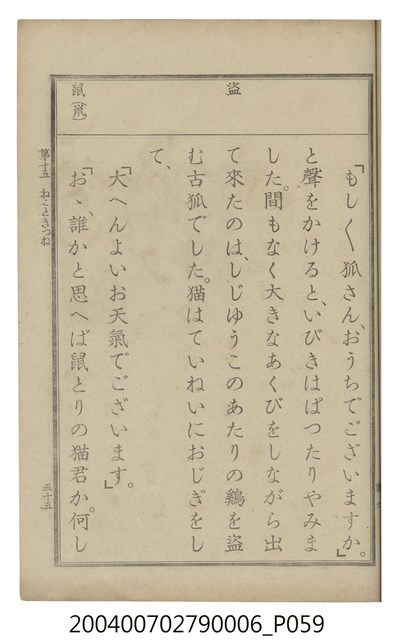 盜
鼠(鼡)
「もし〱狐さん、おうちでございますか。」
と聲をかけると、いびきはぱつたりやみま
した。間もなく大きなあくびをしながら出
て來たのは、しじゆうこのあたりの鷄を盜
む古狐でした。猫はていねいにおじぎをし
て、
「大へんよいお天氣でございます。」
「おゝ、誰かと思へば鼠とりの猫君か。何し
第十五 ねこときつね
五十五
200400702790006_P059